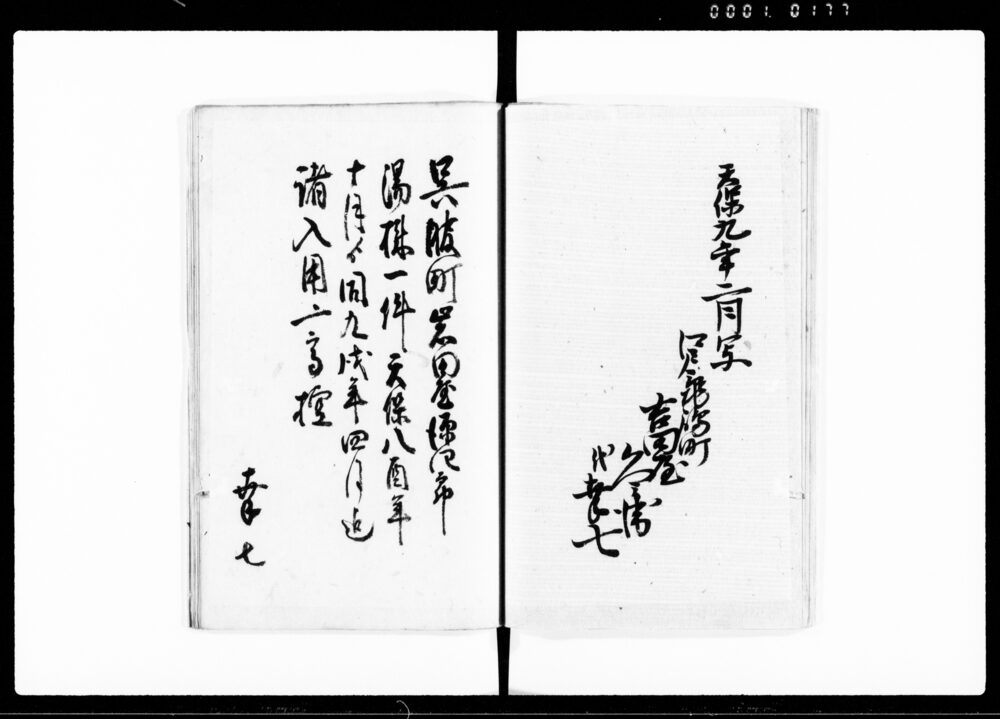 0001.0177
天保九年二月写
呉服町
吉田屋
代幸七
呉服町岩田屋源兵衛
湯株一件天保八酉年
十月ゟ同九戌年四月迄
諸入用之高控
幸七